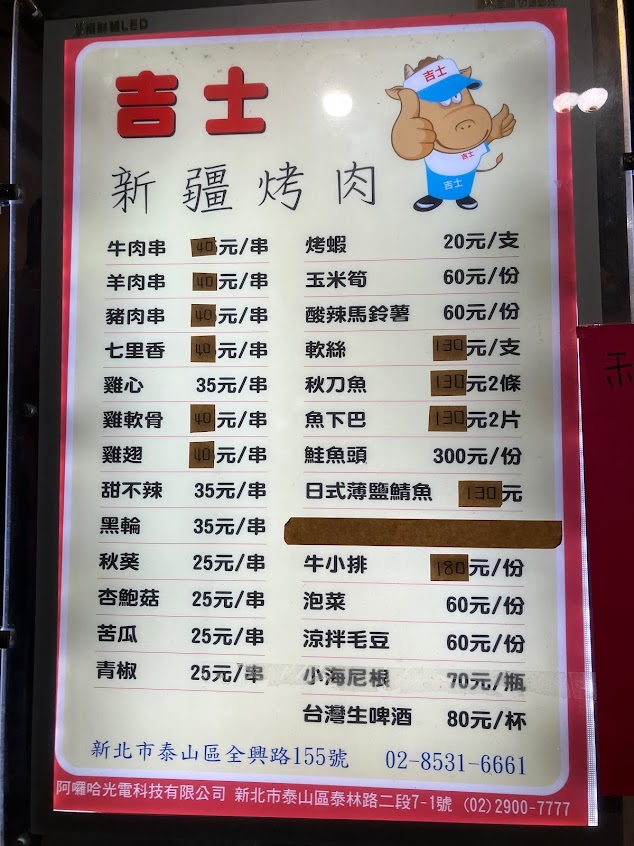 吉士
吉士
吉士
吉士
新疆烤肉
牛肉串 40元/串
羊肉串 40元/串
豬肉串 40元/串
七里香 40元/串
雞心 35元/串
雞軟骨 40元/串
雞翅 40元/串
甜不辣 35元/串
黑輪 35元/串
秋葵 25元/串
杏鮑菇 25元/串
苦瓜 25元/串
青椒 25元/串
烤蝦 20元/支
玉米筍 60元/份
酸辣馬鈴薯 60元/份
軟絲 130元/支
秋刀魚 130元2條
魚下巴 130元2片
鮭魚頭 300元/份
日式薄鹽鯖魚 130元
牛小排 180元/份
泡菜 60元/份
涼拌毛豆 60元/份
小海尼根 70元/瓶
台灣生啤酒 80元/杯
新北市泰山區全興路155號 02-8531-6661
阿囉哈光電科技有限公司 新北市泰山區泰林路二段7-1號 (02)2900-7777